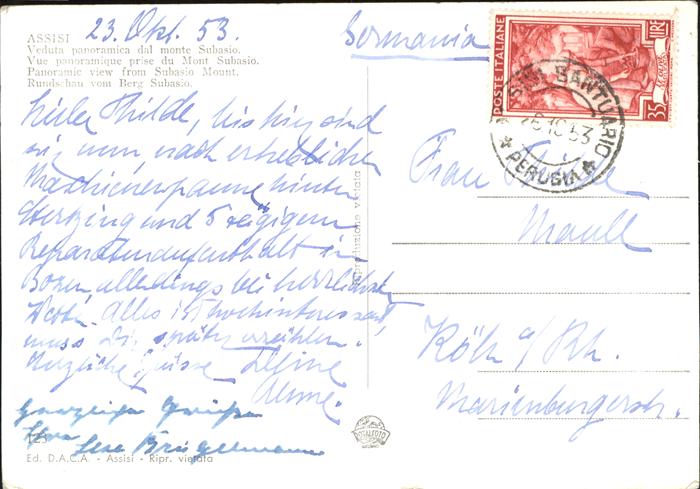 ASSISI 23. Okt. 53.
Veduta panoramica dal monte Subasio.
Vue panoramique prise du Mont Subasio.
Panoramic view from Subasio Mount.
Rundschau vom Berg Subasio.
Liebe Hilde, bis hier sind
wir nun nach erheblicher
Maschienenpanne hinter
Sterzing und 5 tägigem
Reparaturaufenthalt in
Bozen allerdings bei herrlichstem
Wetter. Alles ist hochinteressant,
muss Dir später erzählen.
Herzliche Grüsse Deine
Änne.
Herzliche Grüße
Ihre
Ilse Brügelmann
123
Ed. D.A.C.A. - Assisi - Ripr. vietata
Riproduzione vietata
Germania
POSTE ITALIANE
LIRE
35
SANTUARIO
26.10.53
PERUGIA
Frau Hilde
Maull
Köln a/Rh.
Marienburgerstr.